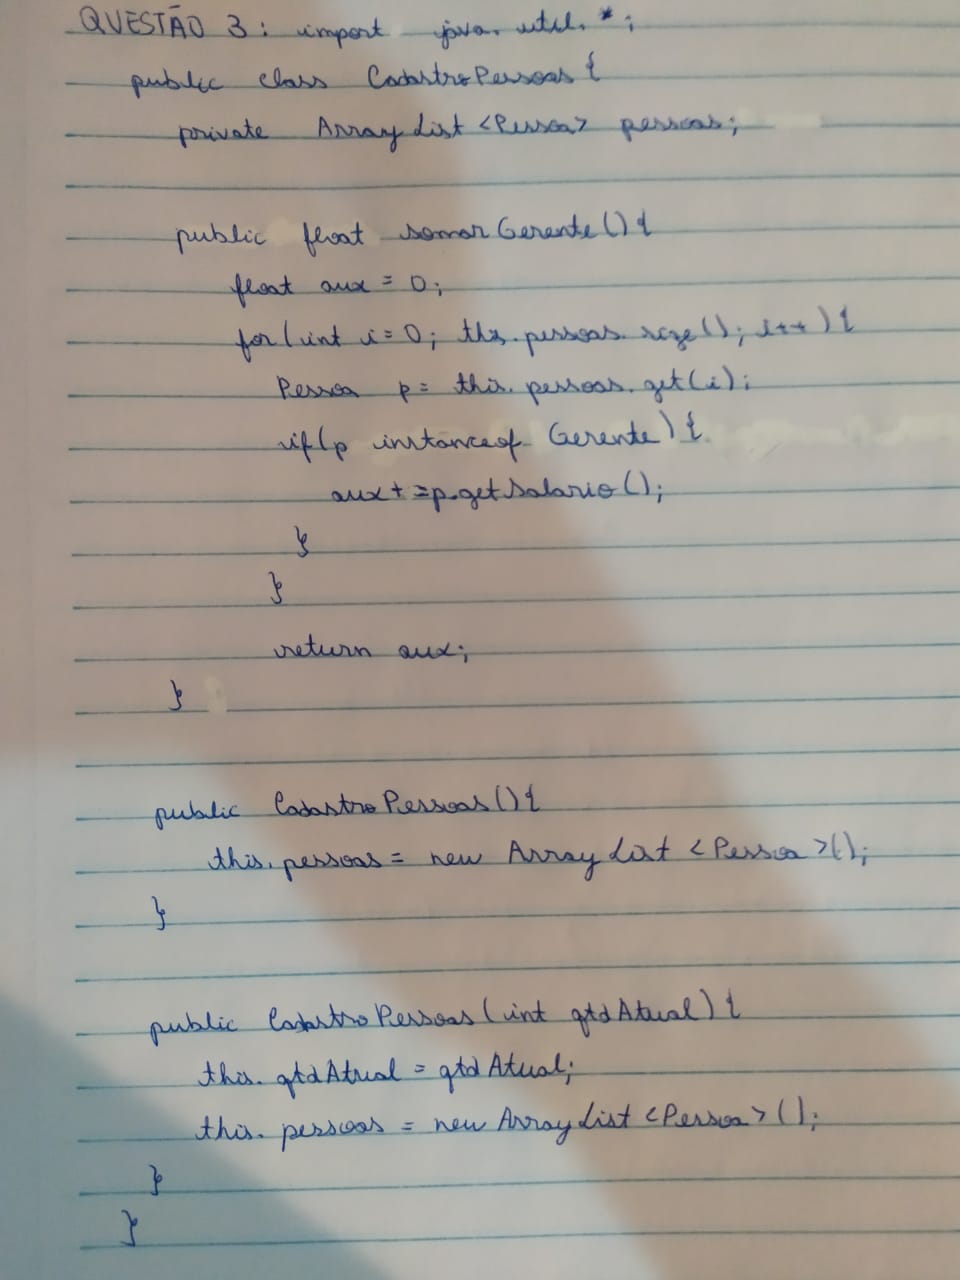 QUESTÃO 3: import java.util.*;
public class CadastroPessoas {
private ArrayList <Pessoa> pessoas;
public float somarGerente() {
float aux = 0;
for (int i = 0; this.pessoas.size(); i++) {
Pessoa p = this.pessoas.get(i);
if (p instanceof Gerente) {
aux += p.getSalario();
}
}
return aux;
}
public CadastroPessoas() {
this.pessoas = new ArrayList <Pessoa>();
}
public CadastroPessoas (int qtdAtual) {
this.qtdAtual = qtdAtual;
this.pessoas = new ArrayList <Pessoa> ();
}
}